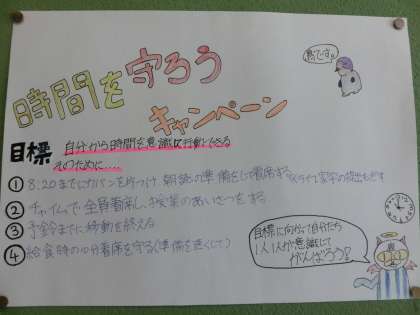 時間を守ろう
キャンペーン
鳥です!!
目標 自分から時間を意識して行動できる
そのために....
① 8:20までにカバンを片づけ 朝読の準備をして着席する
② チャイムで全員着席し、授業のあいさつをする
③ 予鈴までに移動を終える
④ 給食時の10分着席を守る(準備を速くして)
目標に向かって自分たち
1人1人が意識して
がんばろう!